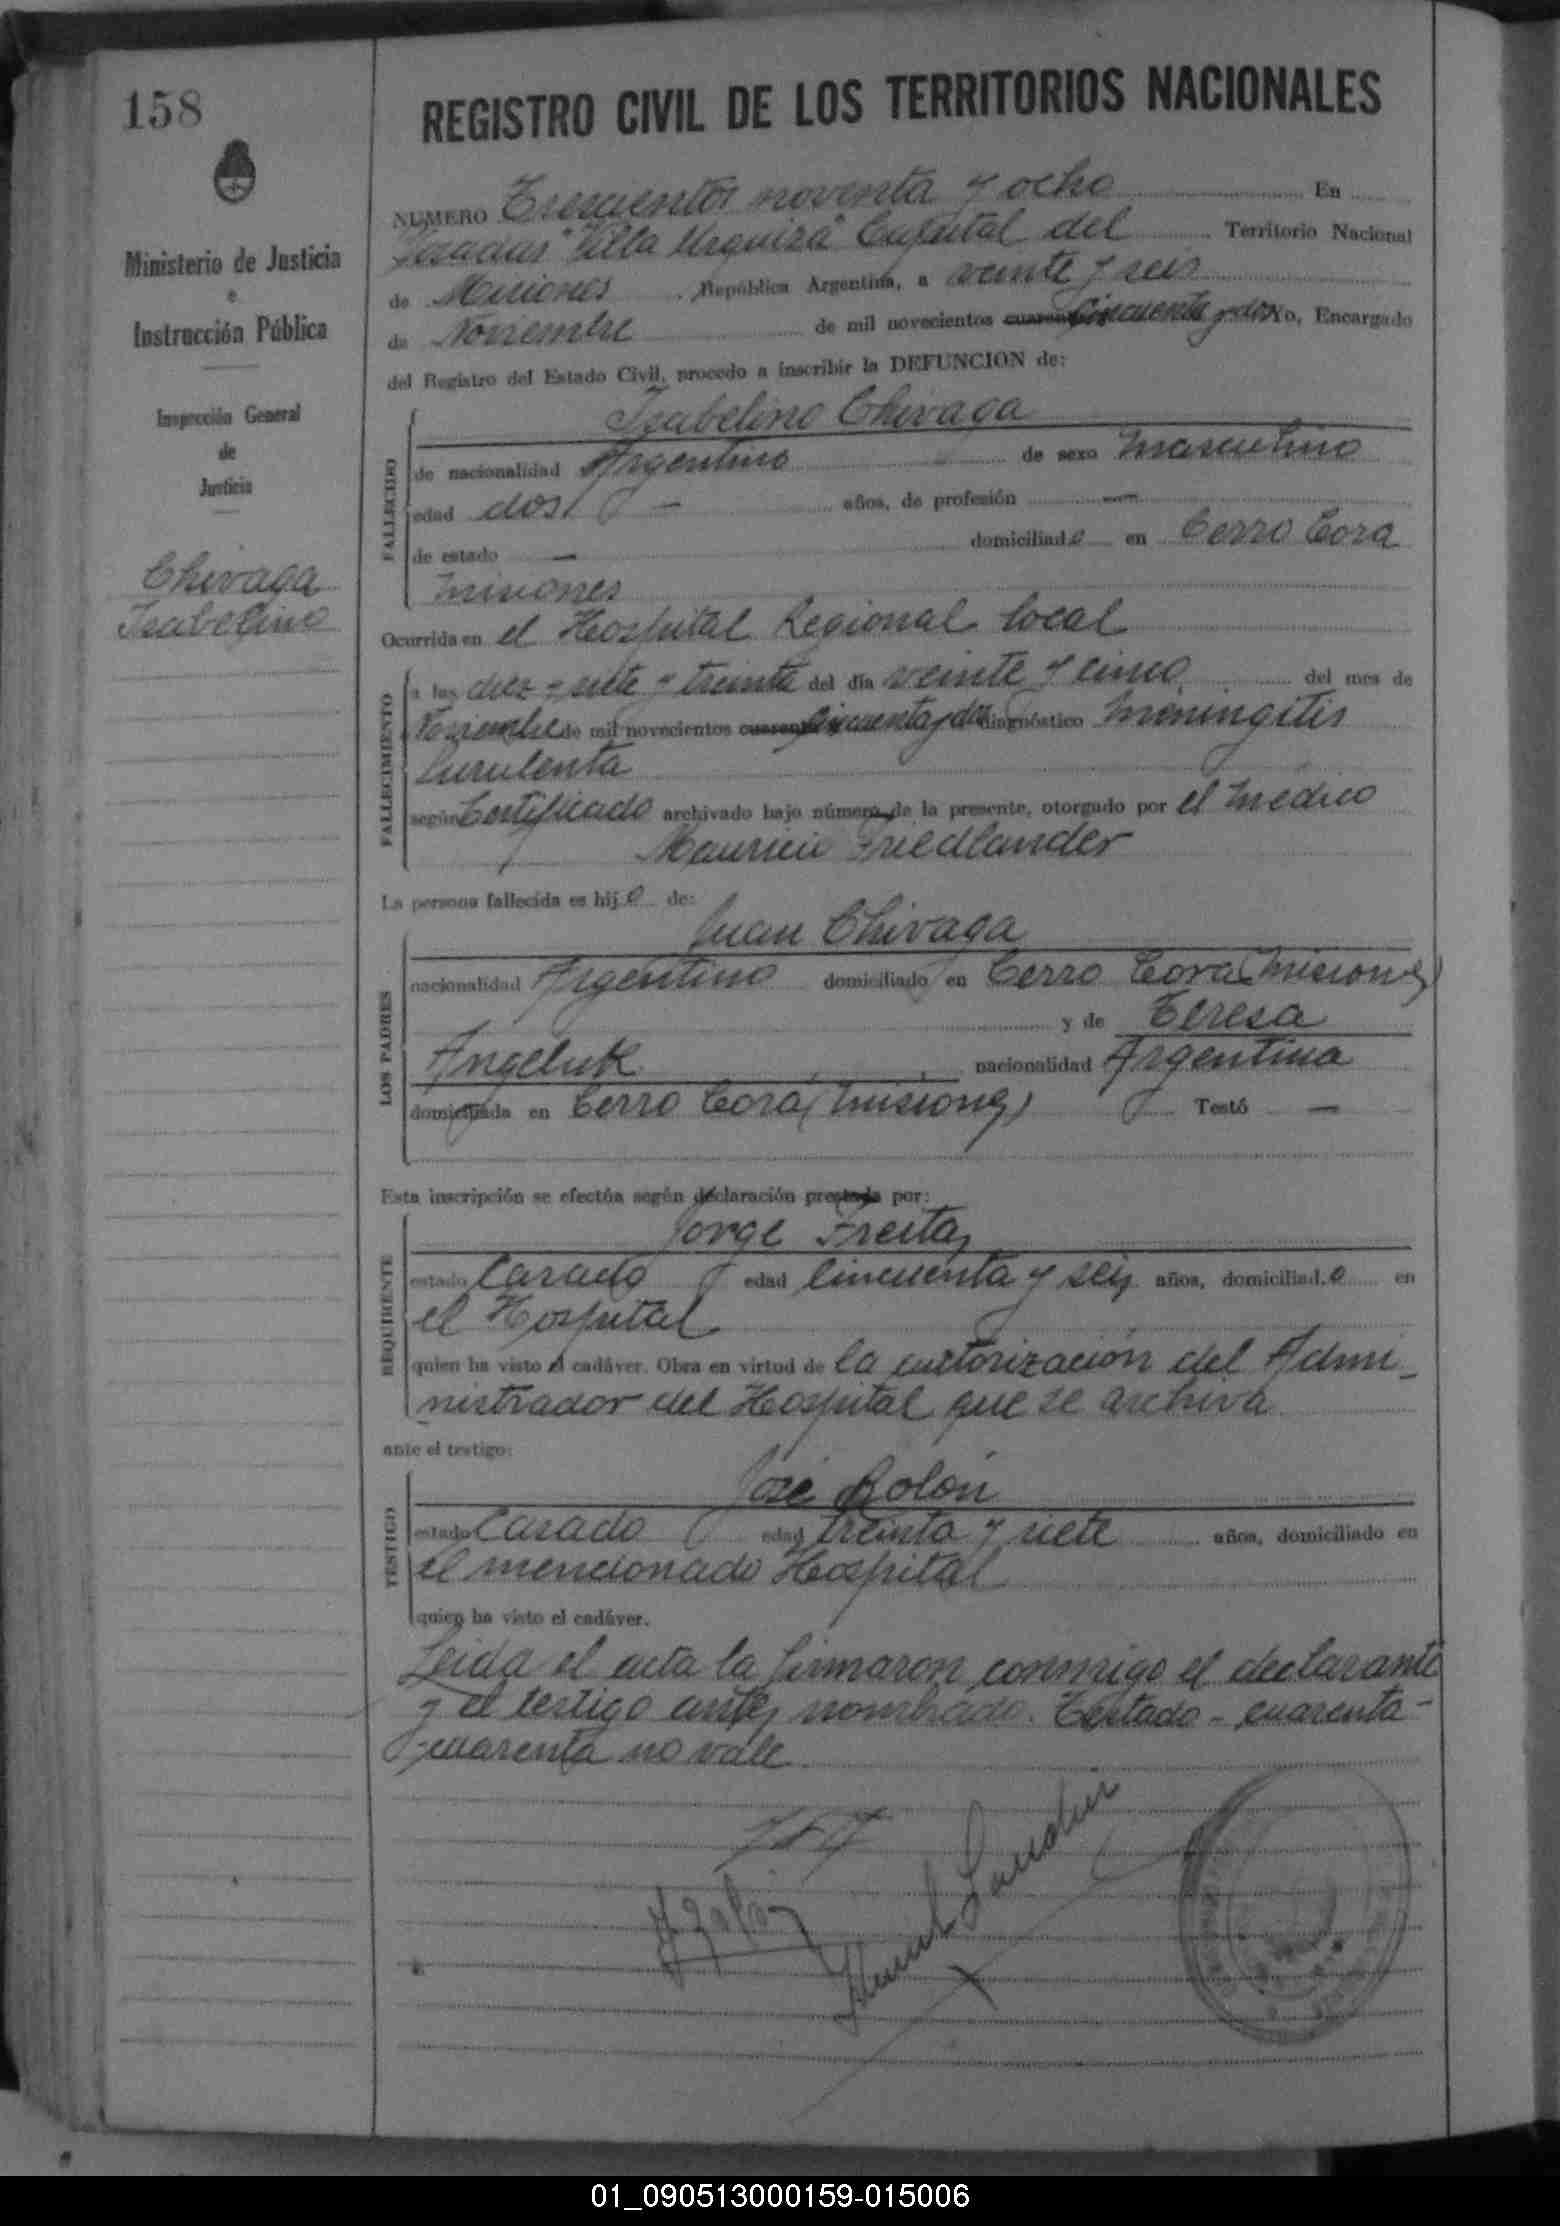 158
REGISTRO CIVIL DE LOS TERRITORIOS NACIONALES
Ministerio de Justicia
e
Instrucción Pública
Inspección General
de
Justicia
Chivaga
Isabelino
NUMERO Trescientos noventa y ocho En
Posadas "Villa Urquiza" Capital del Territorio Nacional
de Misiones República Argentina, a veinte y seis
de Noviembre de mil novecientos cuarenta cincuenta y dos Yo, Encargado
del Registro del Estado Civil, procedo a inscribir la DEFUNCION de:
Isabelino Chivaga
FALLECIDO
de nacionalidad Argentino de sexo masculino
edad dos — años, de profesión —
de estado — domiciliado en Cerro Cora
misiones
Ocurrida en el Hospital Regional local
FALLECIMIENTO
a las diez y siete y treinta del día veinte y cinco del mes de
Noviembre de mil novecientos cuarenta cincuenta y dos diagnóstico meningitis
Purulenta
según Certificado archivado bajo número de la presente, otorgado por el médico
Mauricio Friedlander
La persona fallecida es hijo de:
Juan Chivaga
LOS PADRES
nacionalidad Argentino domiciliado en Cerro Cora (misiones)
y de Teresa
Angeluk nacionalidad Argentina
domiciliada en Cerro Corá (misiones) Testó —
Esta inscripción se efectúa según declaración prestada por:
Jorge Freitas
REQUIRENTE
estado Casado edad cincuenta y seis años, domiciliado en
el Hospital
quien ha visto el cadáver. Obra en virtud de la autorización del Admi-
nistrador del Hospital que se archiva
ante el testigo:
José Rolón
TESTIGO
estado Casado edad treinta y siete años, domiciliado en
el mencionado Hospital
quien ha visto el cadáver.
Leida el acta la firmaron conmigo el declarante
y el testigo antes nombrado. Testado - cuarenta -
cuarenta no vale
01_090513000159-015006